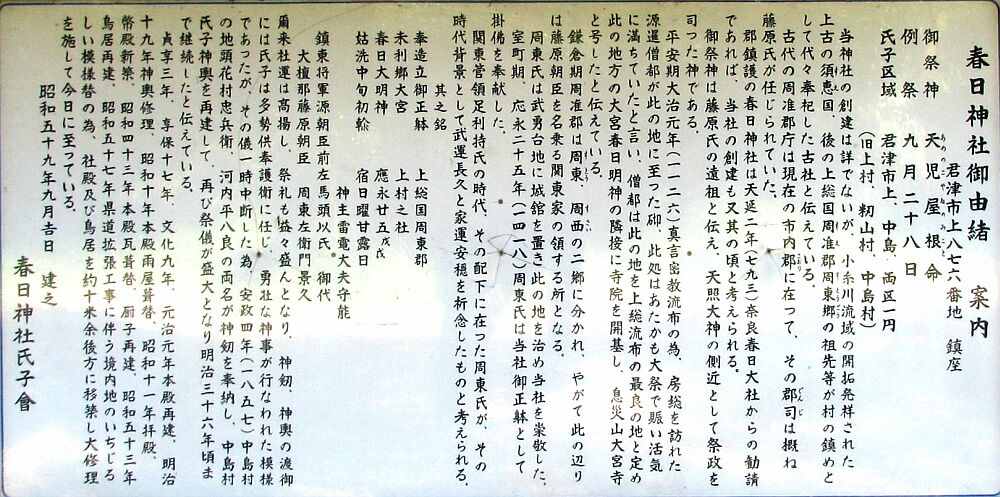 春日神社御由緒 案内
君津市上八七六番地 鎮座
御祭神 天児屋根命
あめのこやねのみこと
例祭 九月二十八日
氏子区域 君津市上、中島、両区一円
(旧上村、籾山村、中島村)
当神社の創建は詳でないが、小糸川流域の開拓発祥された
上古の須恵国、後の上総国周准郡周東郷の祖先等が村の鎮めと
して代々奉祀した古社と伝えている。
古代の周准郡庁は現在の市内郡に在って、その郡司は概ね
藤原氏が任じられていた。
郡鎮護の春日神社は天延二年(七九三)奈良春日大社からの勧請
であれば、当社の創建も又其の頃と考えられる。
御祭神は藤原氏の遠祖と伝え、天照大神の側近として祭政を
司った神である。
平安期大治元年(一一二六)真言密教流布の為、房総を訪れた
源暹僧都が此の地に至った砌、此処はあたかも大祭で賑い活気
に満ちていたと言い、僧都は此の地を上総流布の最良の地と定め
此の地方の大宮春日明神の隣接に寺院を開基し、息災山大宮寺
と号したと伝えている。
鎌倉期周准郡は周東、周西の二郷に分かれ、やがて此の辺り
は藤原朝臣を名乗る関東家の領する所となる。
周東氏は武勇台地に城館を置き此の地を治め当社を崇敬した。
室町期、応永二十五年(一四一八)周東氏は当社御正躰として
掛佛を奉献した。
関東管領足利持氏の時代、その配下に在った周東氏が、その
時代背景として武運長久と家運安穏を祈念したものと考えられる。
其之銘
奉造立御正躰 上総国周東郡
未利郷大宮 上村之社
春日大明神 應永廿五戊戌
姑洗中旬初松 宿日曜廿露日
神主雷電大夫守能
鎮東将軍源朝臣前左馬頭以氏 御代
大檀那藤原朝臣 周東左衛門景久
爾来社運は高揚し、祭礼も益々盛んとなり、神剱、神輿の渡御
には氏子は多勢供奉護衛に任じ、勇壮な神事が行なわれた模様
であったが、その儀一時中断した為、安政四年(一八五七)中島村
の地頭花村忠兵衛、河内平八良の両名が神剱を奉納し、中島村
氏子神輿を再建して、再び祭儀が盛大となり明治三十六年頃ま
で継続したと伝えている。
貞享三年、享保十七年、文化九年、元治元年本殿再建、明治
十九年神輿修理、昭和十年本殿雨屋葺替、昭和十一年拝殿、
幣殿新築、昭和四十三年本殿瓦葺替、厨子再建、昭和五十三年
鳥居再建、昭和五十七年県道拡張工事に伴う境内地のいちじる
しい模様替の為、社殿及び鳥居を約十米余後方に移築し大修理
を施して今日に至っている。
昭和五十九年九月吉日 建之
春日神社氏子會